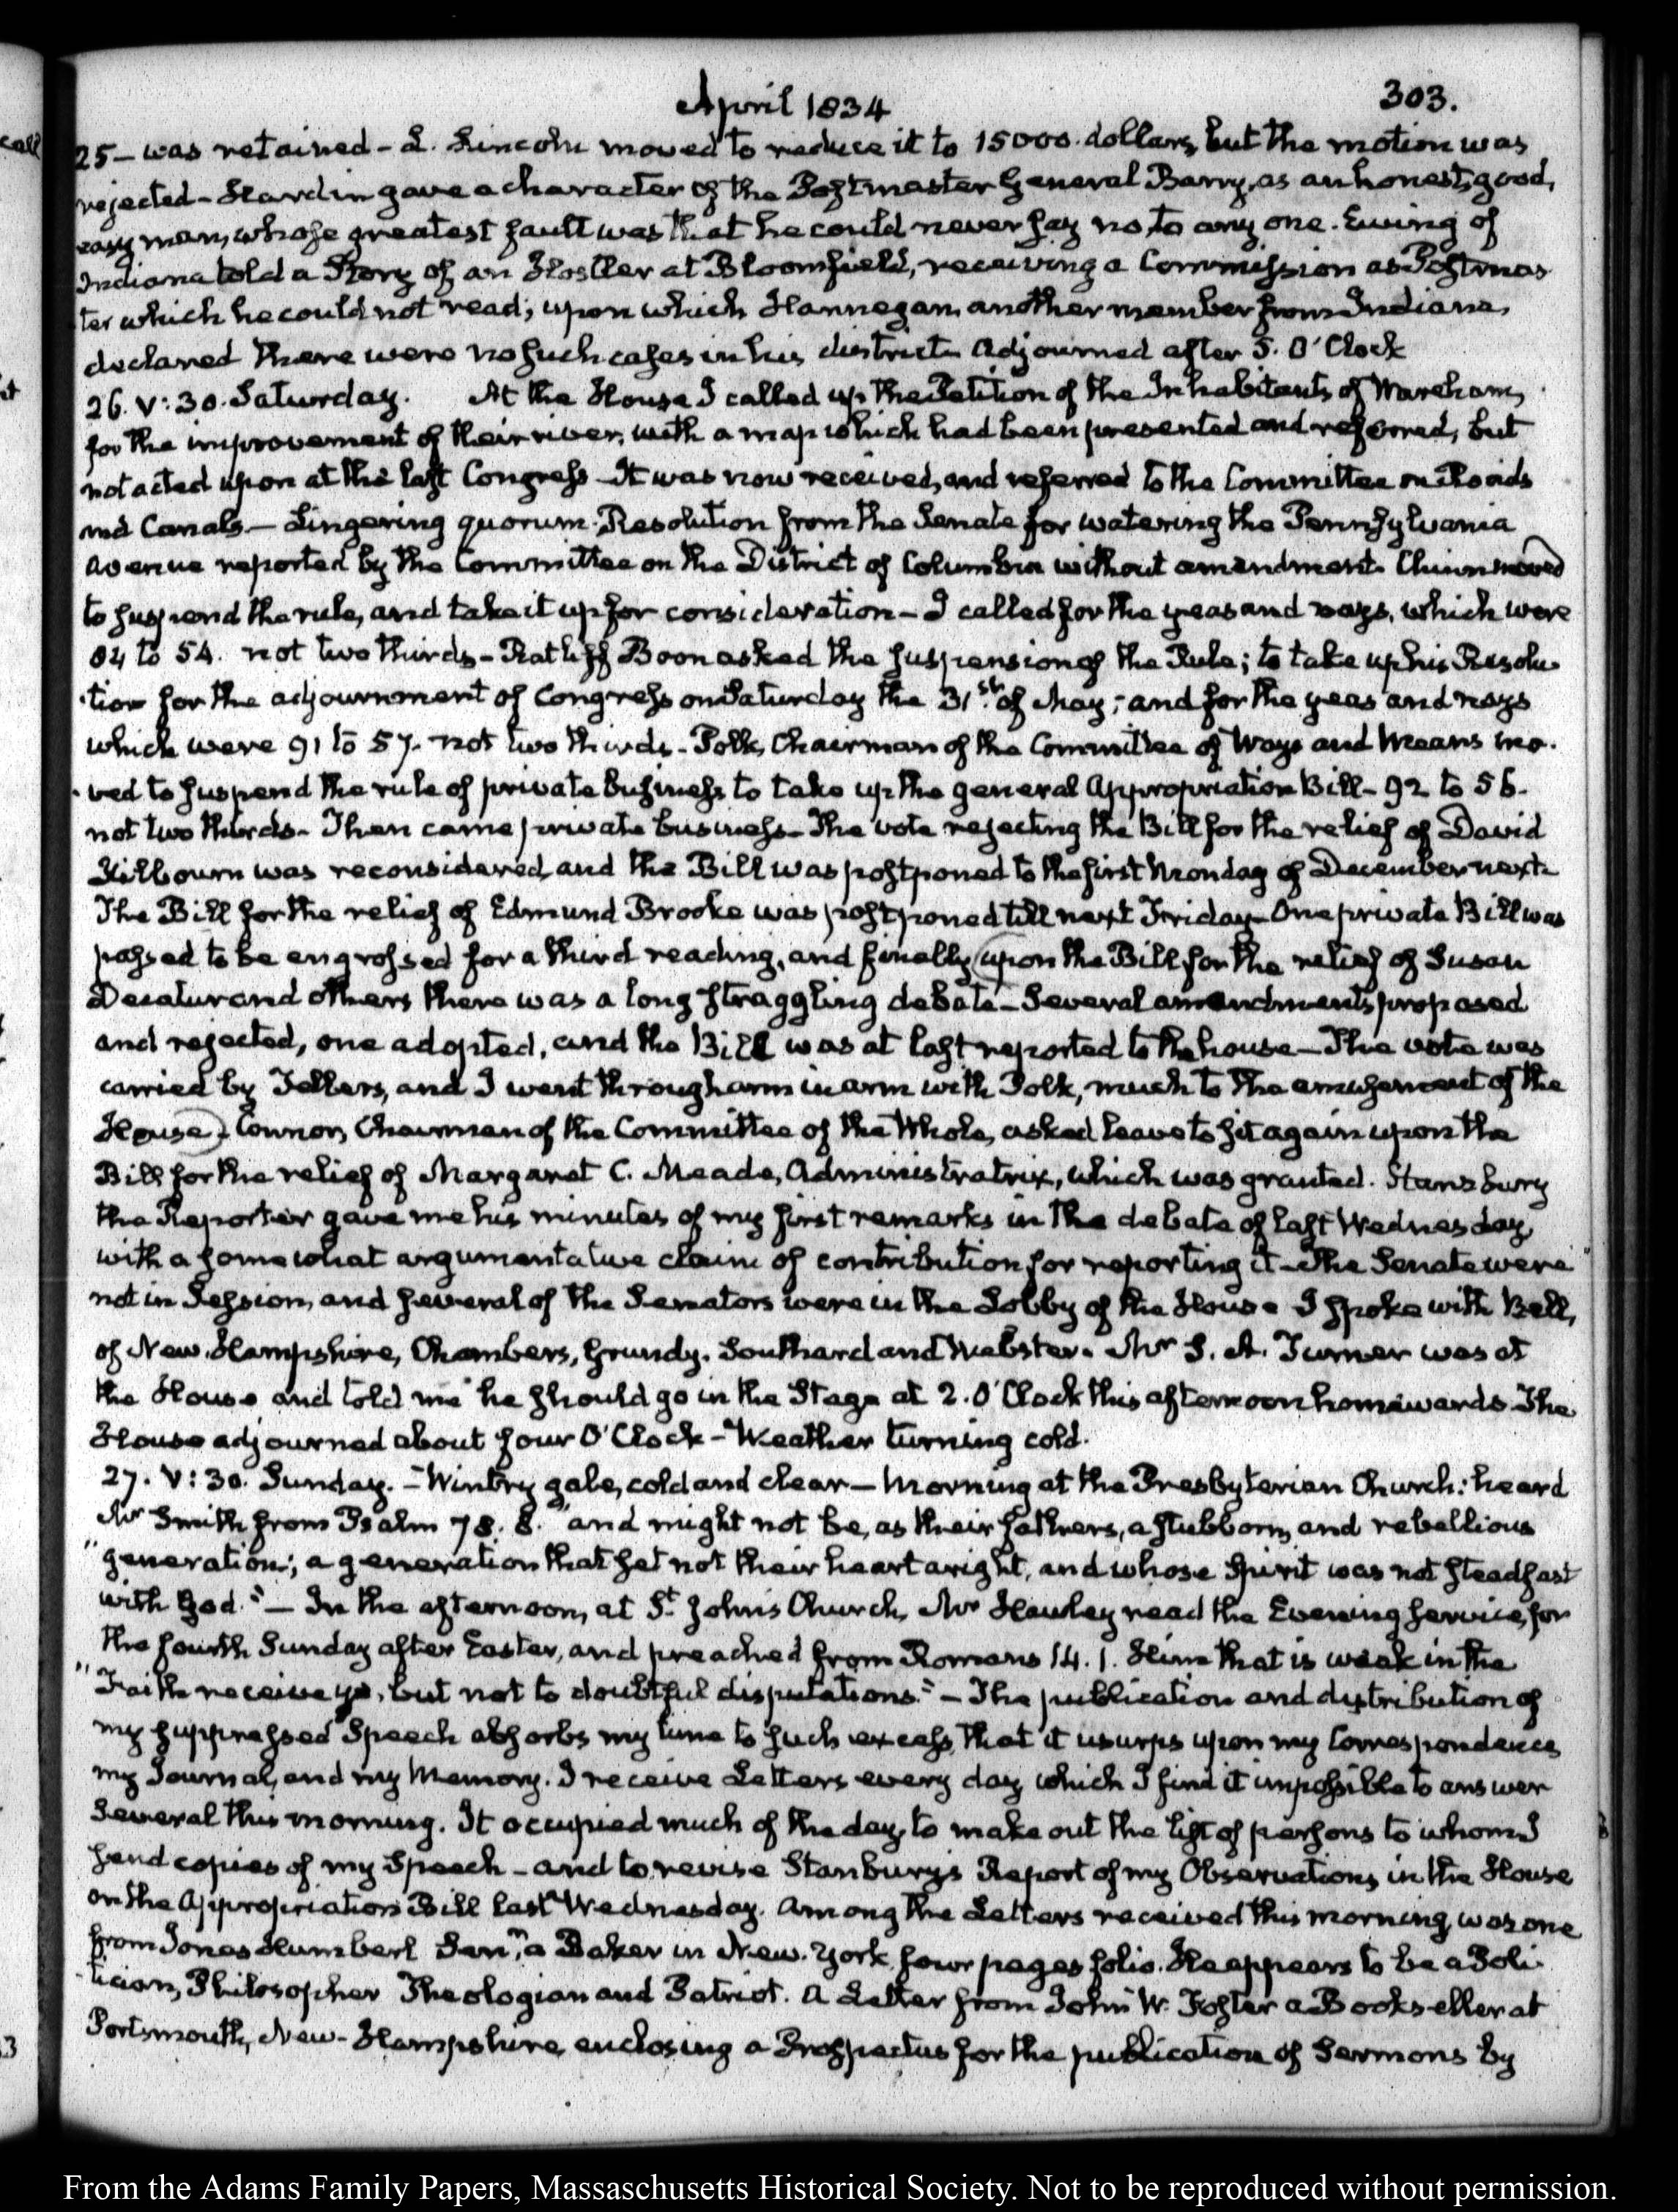 April 1834
303.
25 – was retained – L. Lincoln moved to reduce it to 15000 dollars, but the motion was
rejected – Hardin gave a character of the Postmaster General Barry, as an honest, good,
easy man, whose greatest fault was that he could never say no, to any one. Ewing of
Indiana told a Story of an Hostler at Bloomfield, receiving a Commission as Postmas
ter which he could not read; upon which Hannegan, another member from Indiana,
declared there were no such cases in his district. Adjourned after 5. O'Clock
26. V: 30. Saturday. At the House I called up the Petition of the Inhabitants of Wareham,
for the improvement of their river, with a map which had been presented and referred, but
not acted upon at the last Congress – It was now received, and referred to the Committee on Roads
and Canals – Lingering quorum. Resolution from the Senate for watering the Pennsylvania
Avenue reported by the Committee on the District of Columbia without amendment. Chinn moved
to suspend the rule, and take it up for consideration – I called for the yeas and nays, which were
84 to 54. not two thirds – Ratliff Boon asked the suspension of the Rule; to take up his Resolu-
tion for the adjournment of Congress on Saturday the 31st. of May; and for the yeas and nays
which were 91 to 57. not two thirds – Polk, Chairman of the Committee of Ways and Means mo-
ved to suspend the rule of private business to take up the general Appropriation Bill – 92 to 56.
not two thirds – Then came private business – The vote rejecting the Bill for the relief of David
Kilbourn was reconsidered, and the Bill was postponed to the first Monday of December next.
The Bill for the relief of Edmund Brooke was postponed till next Friday – One private Bill was
passed to be engrossed for a third reading, and finally (upon the Bill for the relief of Susan
Decatur and others there was a long straggling debate – Several amendments proposed
and rejected, one adopted, and the Bill was at last reported to the house – The vote was
carried by Tellers, and I went through arm in arm with Polk, much to the amusement of the
House). Connor, Chairman of the Committee of the Whole, asked leave to sit again upon the
Bill for the relief of Margaret C. Meade, Administratrix, which was granted. Stansbury
the Reporter gave me his minutes of my first remarks in the debate of last Wednesday,
with a somewhat argumentative claim of contribution for reporting it – The Senate were
not in Session, and several of the Senators were in the Lobby of the House. I spoke with Bell,
of New Hampshire, Chambers, Grundy, Southard and Webster. Mr S. A. Turner was at
the House and told me he should go in the Stage at 2. O'Clock this afternoon homewards. The
House adjourned about four O'Clock – Weather turning cold.
27. V: 30. Sunday. – Wintry gale, cold and clear – Morning at the Presbyterian Church: heard
Mr Smith from Psalm 78. 8. "and might not be, as their fathers, a stubborn, and rebellious
"generation; a generation that set not their heart aright, and whose Spirit was not steadfast
with God." – In the afternoon, at St. Johns Church, Mr Hawley read the Evening service, for
the fourth Sunday after Easter, and preached from Romans 14. 1. Him that is weak in the
"Faith receive ye, but not to doubtful disputations." – The publication and distribution of
my suppressed Speech absorbs my time to such excess, that it usurps upon my Correspondence
my Journal, and my Memory. I receive Letters every day which I find it impossible to answer
Several this morning. It occupied much of the day, to make out the list of persons to whom I
send copies of my Speech – and to revise Stanbury's Report of my Observations in the House
on the Appropriation Bill last Wednesday. Among the Letters received this morning was one
from Jonas Humbert Senr., a Baker in New-York, four pages folio. He appears to be a Poli-
tician, Philosopher Theologian and Patriot. A Letter from John W. Foster a Bookseller at
Portsmouth, New-Hampshire, enclosing a Prospectus for the publication of Sermons by
From the Adams Family Papers, Massachusetts Historical Society. Not to be reproduced without permission.